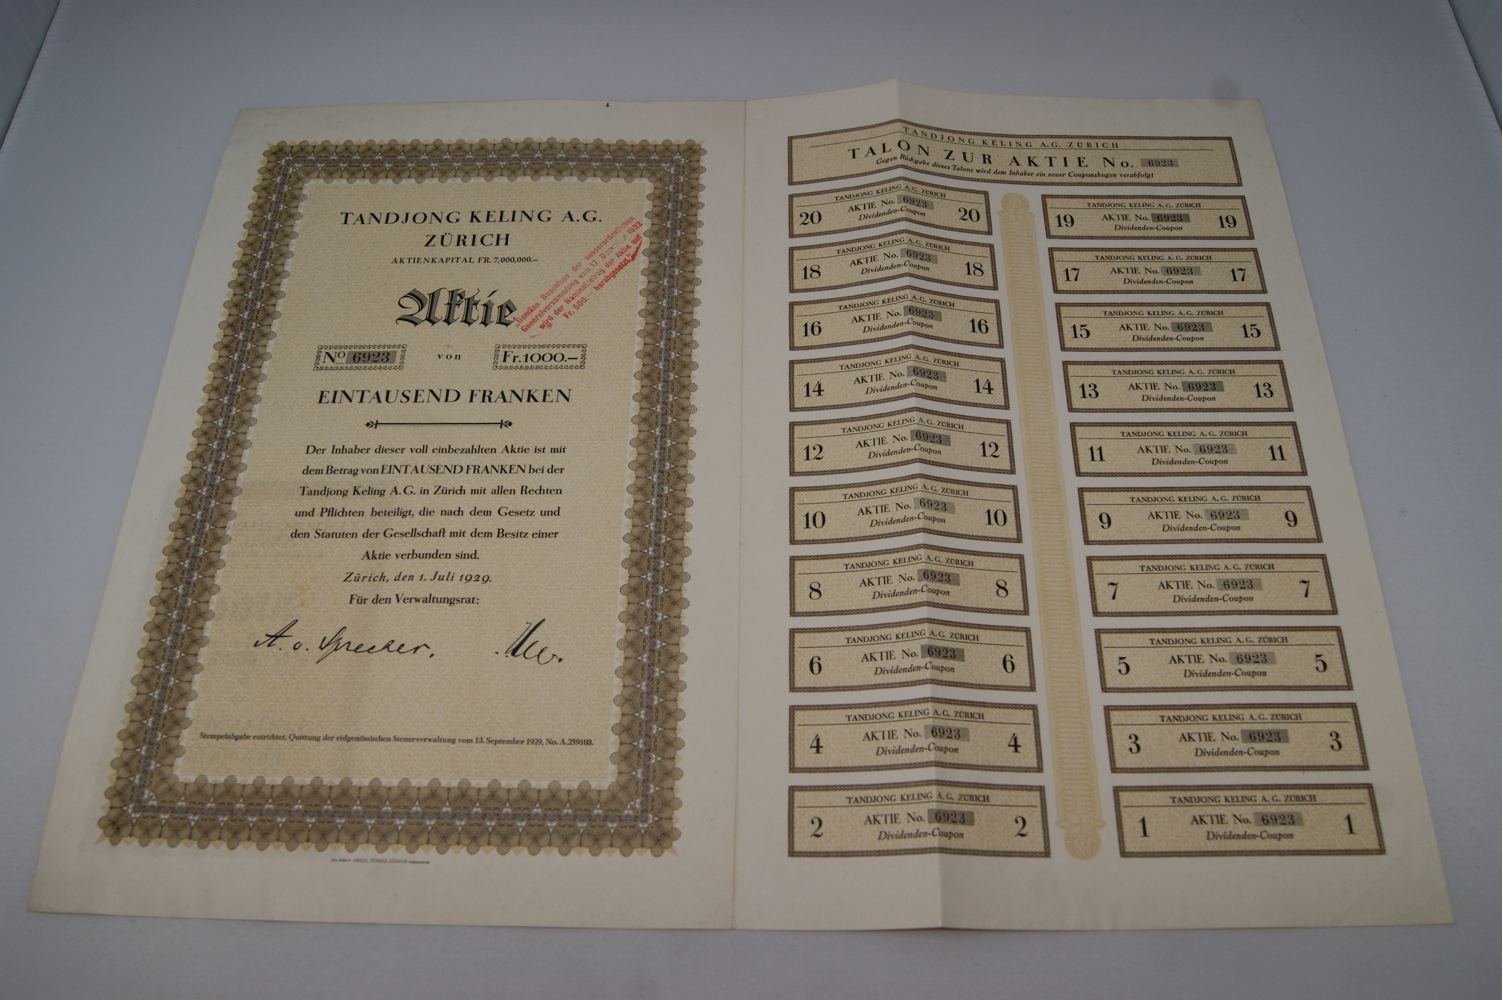 TANDJONG KELING A.G.
ZÜRICH
AKTIENKAPITAL FR. 7,000,000.–
Aktie
„Gemäss Beschluss der ausserordentlichen
Generalversammlung vom 17. 1932
wird der Nominalbetrag der Aktie auf
Fr. 500.– herabgesetzt."
No 6923 von Fr. 1000.–
EINTAUSEND FRANKEN
Der Inhaber dieser voll einbezahlten Aktie ist mit
dem Betrag von EINTAUSEND FRANKEN bei der
Tandjong Keling A.G. in Zürich mit allen Rechten
und Pflichten beteiligt, die nach dem Gesetz und
den Statuten der Gesellschaft mit dem Besitz einer
Aktie verbunden sind.
Zürich, den 1. Juli 1929.
Für den Verwaltungsrat:
A. v. Sprecher.
Stempelabgabe entrichtet. Quittung der eidgenössischen Steuerverwaltung vom 13. September 1929, No. A.259103.
TANDJONG KELING A.G. ZÜRICH
TALON ZUR AKTIE No. 6923
Gegen Rückgabe dieses Talons wird dem Inhaber ein neuer Couponsbogen verabfolgt
TANDJONG KELING A.G. ZÜRICH
20 AKTIE No. 6923 20
Dividenden-Coupon
TANDJONG KELING A.G. ZÜRICH
19 AKTIE No. 6923 19
Dividenden-Coupon
TANDJONG KELING A.G. ZÜRICH
18 AKTIE No. 6923 18
Dividenden-Coupon
TANDJONG KELING A.G. ZÜRICH
17 AKTIE No. 6923 17
Dividenden-Coupon
TANDJONG KELING A.G. ZÜRICH
16 AKTIE No. 6923 16
Dividenden-Coupon
TANDJONG KELING A.G. ZÜRICH
15 AKTIE No. 6923 15
Dividenden-Coupon
TANDJONG KELING A.G. ZÜRICH
14 AKTIE No. 6923 14
Dividenden-Coupon
TANDJONG KELING A.G. ZÜRICH
13 AKTIE No. 6923 13
Dividenden-Coupon
TANDJONG KELING A.G. ZÜRICH
12 AKTIE No. 6923 12
Dividenden-Coupon
TANDJONG KELING A.G. ZÜRICH
11 AKTIE No. 6923 11
Dividenden-Coupon
TANDJONG KELING A.G. ZÜRICH
10 AKTIE No. 6923 10
Dividenden-Coupon
TANDJONG KELING A.G. ZÜRICH
9 AKTIE No. 6923 9
Dividenden-Coupon
TANDJONG KELING A.G. ZÜRICH
8 AKTIE No. 6923 8
Dividenden-Coupon
TANDJONG KELING A.G. ZÜRICH
7 AKTIE No. 6923 7
Dividenden-Coupon
TANDJONG KELING A.G. ZÜRICH
6 AKTIE No. 6923 6
Dividenden-Coupon
TANDJONG KELING A.G. ZÜRICH
5 AKTIE No. 6923 5
Dividenden-Coupon
TANDJONG KELING A.G. ZÜRICH
4 AKTIE No. 6923 4
Dividenden-Coupon
TANDJONG KELING A.G. ZÜRICH
3 AKTIE No. 6923 3
Dividenden-Coupon
TANDJONG KELING A.G. ZÜRICH
2 AKTIE No. 6923 2
Dividenden-Coupon
TANDJONG KELING A.G. ZÜRICH
1 AKTIE No. 6923 1
Dividenden-Coupon